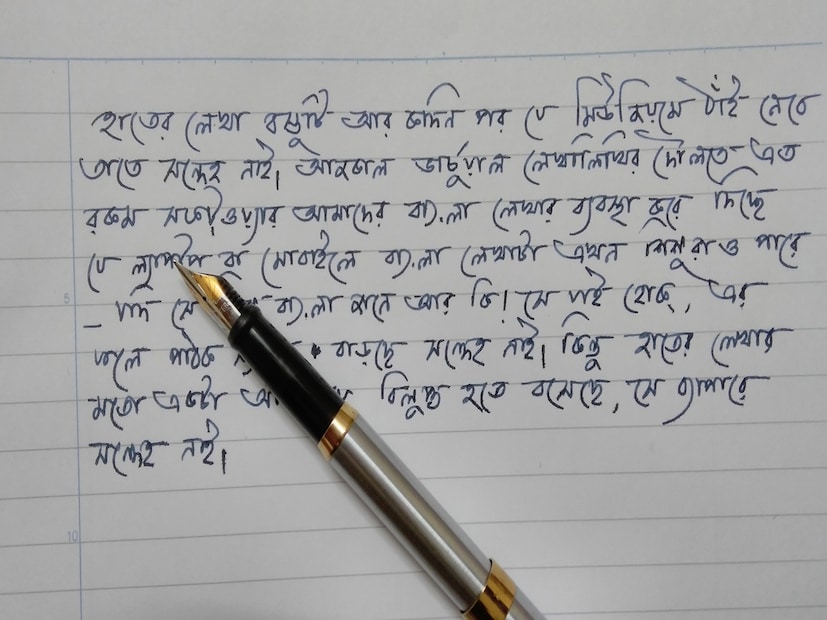 হাতের লেখা বস্তুটি আর কদিন পর যে মিউজিয়মে ঠাঁই নেবে
তাতে সন্দেহ নাই। আজকাল ভার্চুয়াল লেখালিখির দৌলতে এত
রকম সফ্টওয়্যার আমাদের বাংলা লেখার ব্যবস্থা করে দিচ্ছে
যে ল্যাপটপ বা মোবাইলে বাংলা লেখাটা এখন শিশুরাও পারে
– যদি সে বাংলা জানে আর কি। সে যাই হোক, এর
ফলে পাঠক বাড়ছে সন্দেহ নাই। কিন্তু হাতের লেখার
মতো একটা বিলুপ্ত হতে বসেছে, সে ব্যাপারে
সন্দেহ নাই।
5
10